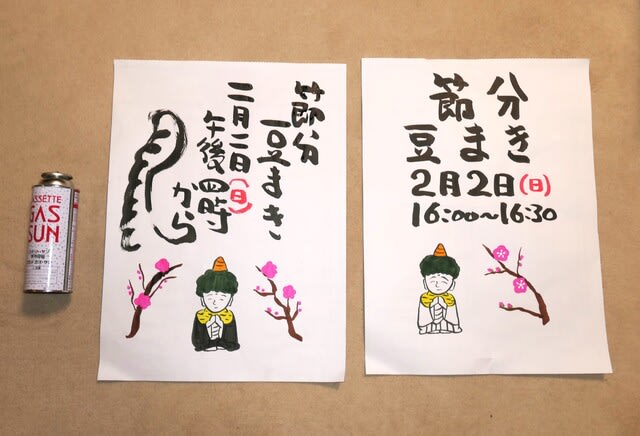 節分
豆まき
二月二日(日)
午後四時
から
節分
豆まき
2月2日(日)
16:00~16:30
CASSETTE
GAS
SUN